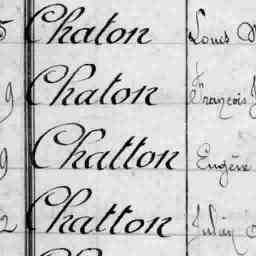 5 Chaton Louis
9 Chaton François
9 Chatton Eugène
2 Chatton Julien